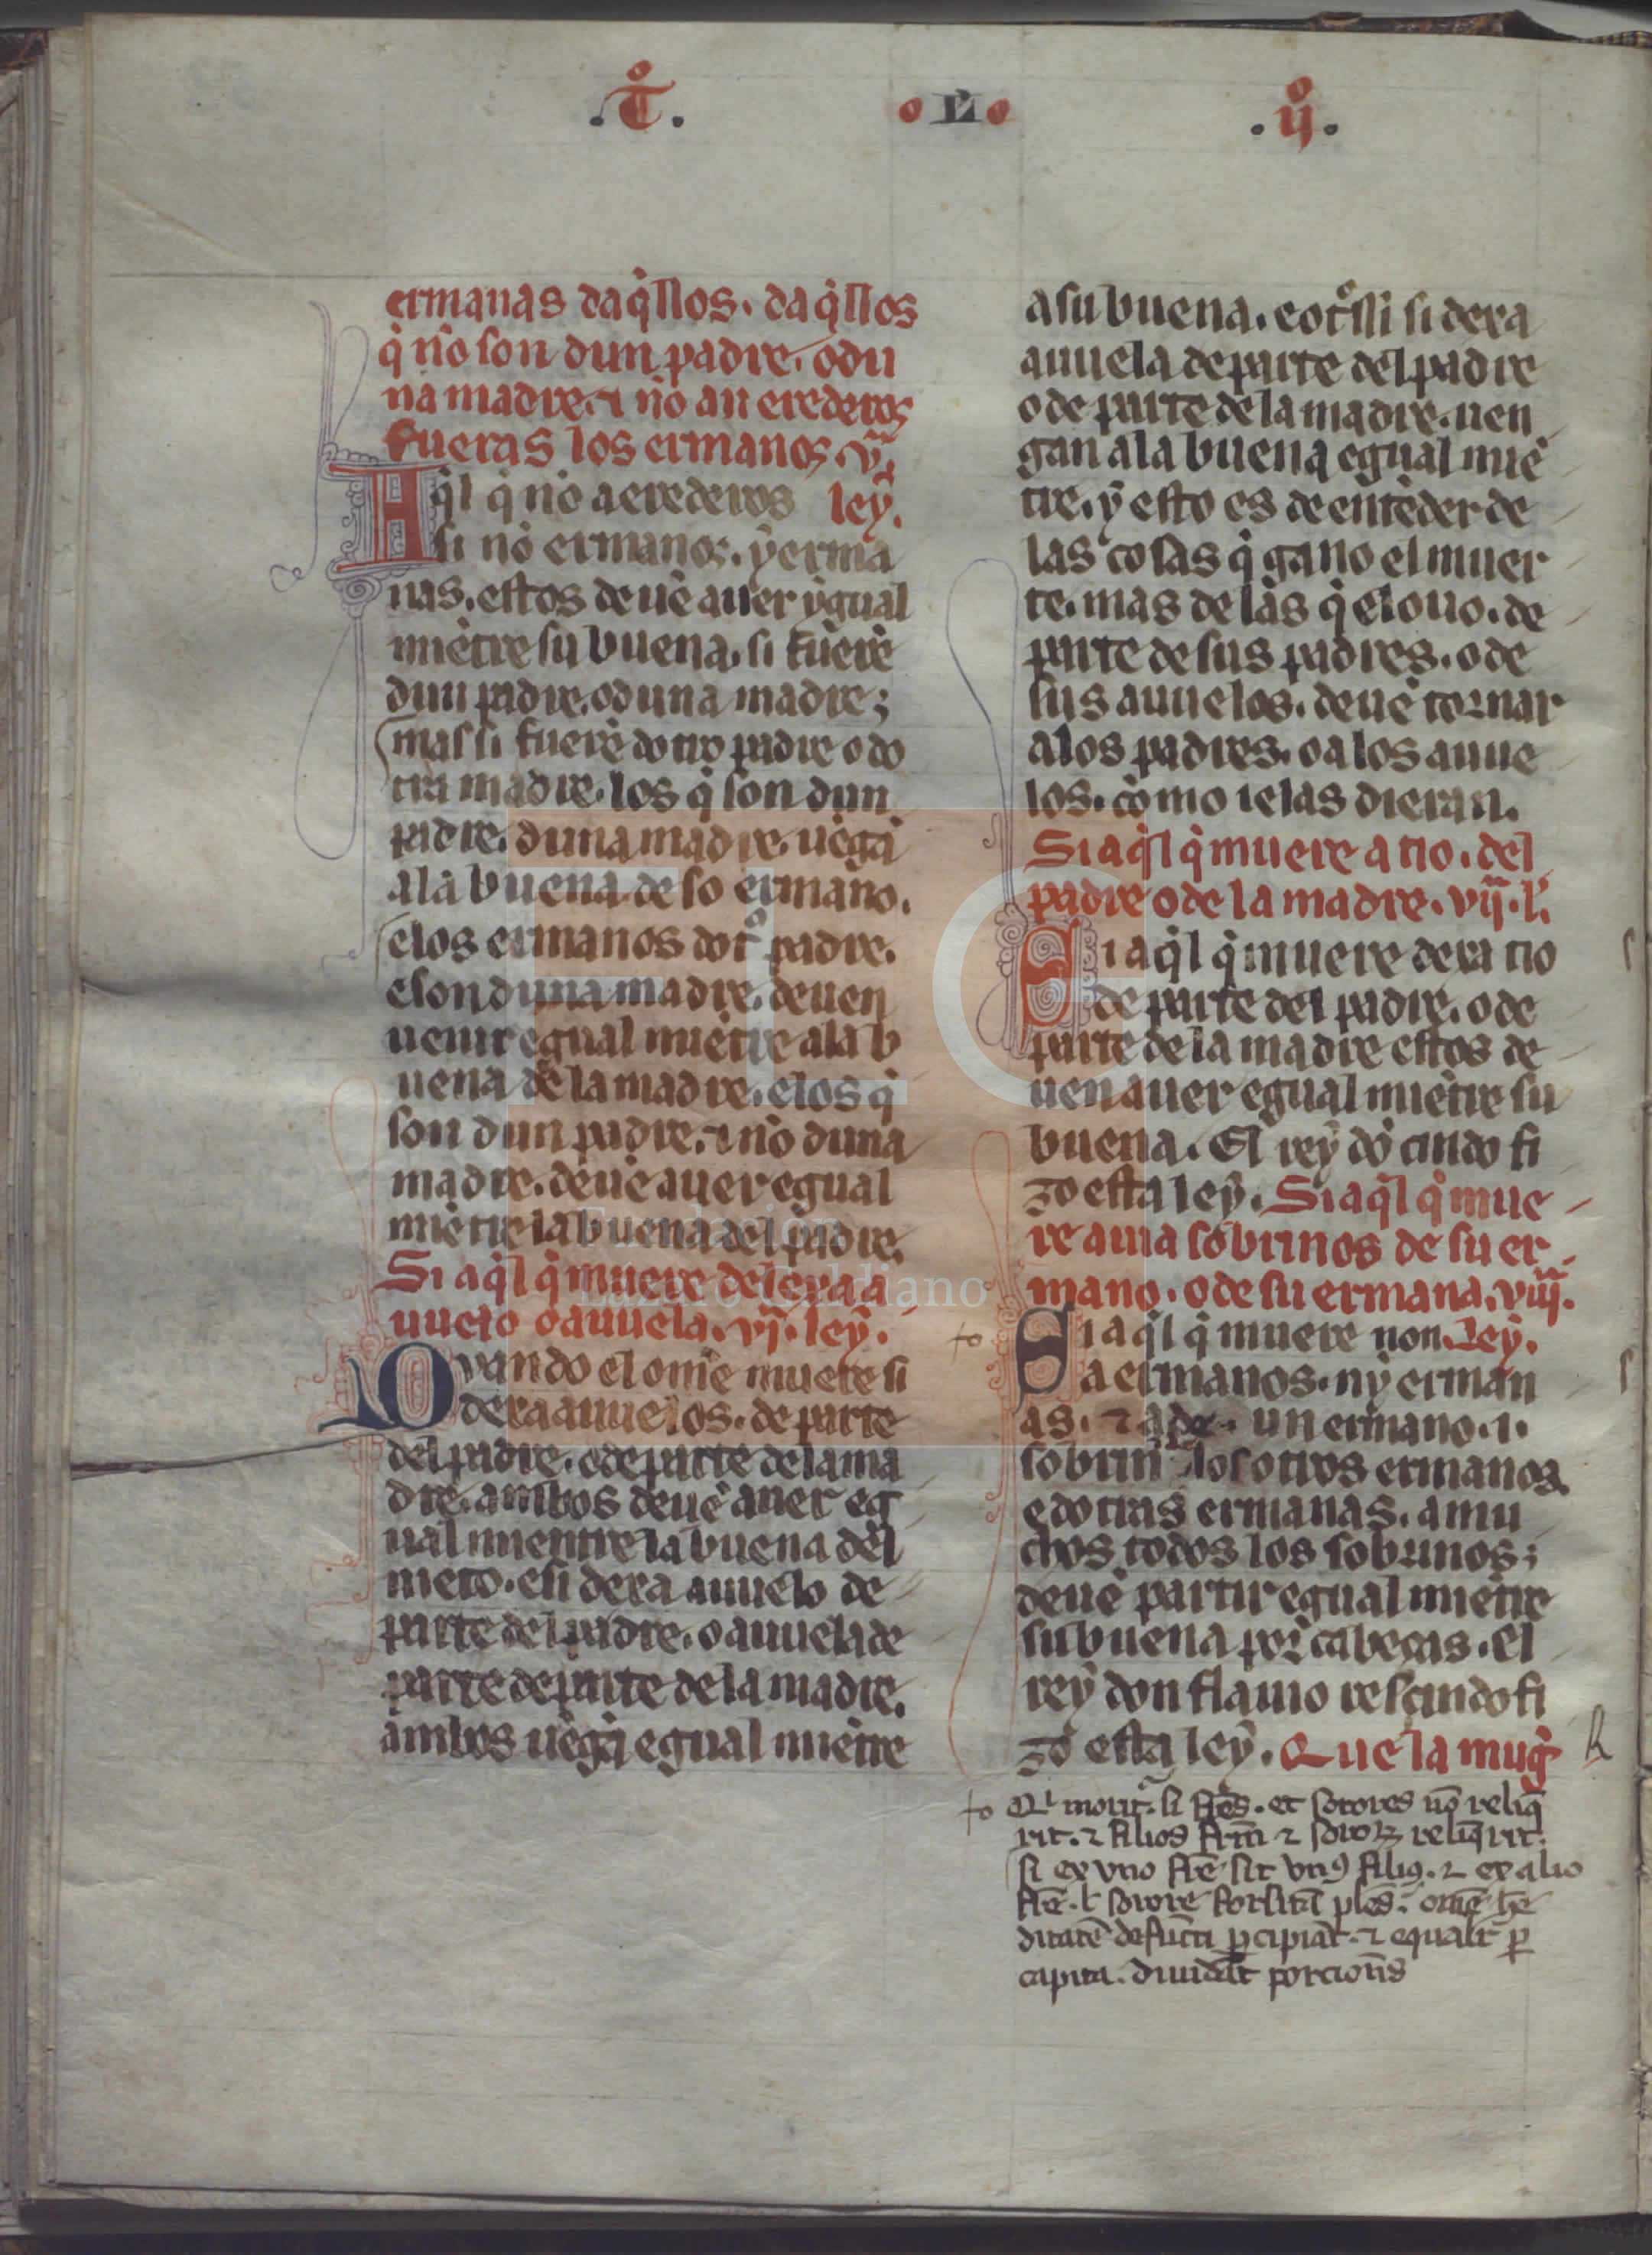 .t̊. .L. .ij̊.
ermanas daq̇llos. daq̇llos
q̇ nō son dun padre. odu
na madre. ⁊ nō an erederos
fueras los ermanos. v.ª
Aq̇l q̇ nō a erederos ley.
si nō ermanos. ẏ erma
nas. estos deuē auer ẏgual
miētre su buena. si fuerē
dun padre. o duna madre;
mas si fuerē dotro padre o do
tra madre. los q̇ son dun
padre. duna madre. uēgā
ala buena de so ermano.
elos ermanos dotº padre.
e son duna madre. deuen
uenir egual miētre ala b
uena de la madre. elos q̇
son dun padre. ⁊ nō duna
madre. deuē auer egual
miētre la buena del padre.
Si aq̇l q̇ muere delexa a
uuelo o auuela. vj. ley.
Quando el omē muere si
dexa auuelos. de parte
del padre. e de parte de la ma
dre. ambos deuē auer eg
ual mientre la buena del
nieto. e si dexa auuelo de
parte del padre. o auuela de
parte de parte de la madre.
ambos uēgā egual miētre
a su buena. e otºssi si dexa
auuela de parte del padre
o de parte de la madre. uen
gan a la buena egual miē
tre. ẏ esto es de entēder de
las cosas q̇ gano el muer
te. mas de las q̇ el ouo. de
parte de sus padres. o de
sus auuelos. deuē tornar
a los padres. o a los auue
los. como ielas dieran.
Si aq̇l q̇ muere a tio. del
padre o de la madre. vij. l.
Si aq̇l q̇ muere dexa tio
de parte del padre. o de
parte de la madre estos de
uen auer egual miētre su
buena. El reẏ dō cindo fi
zo esta leẏ. Si aq̇l q̇ mue
re a uia sobrinos de su er
mano. o de su ermana. viij.
Si aq̇l q̇ muere non ley.
a ermanos. nẏ erman
as. ⁊ a de un ermano. i.
sobrin los otros ermanos.
e dotras ermanas. a mu
chos todos los sobrinos;
deuē partir egual miētre
su buena por cabeças. el
reẏ don flauio rescindo fi
zo esta leẏ. Que la mug̉
Qⁱ morit̉. si frēs. et sorores nō reliq̄
rit. ⁊ filios frīs ⁊ soror̄ reliq̄rit.
si ex vno frē sit vnꝰ filiꝰ. ⁊ ex alio
frē. l̄ sorore forsitā plēs. omē hē
ditatē defūcti p̄cipiāt. ⁊ equalit̉ ꝑ
capita. diuidāt porcionēs